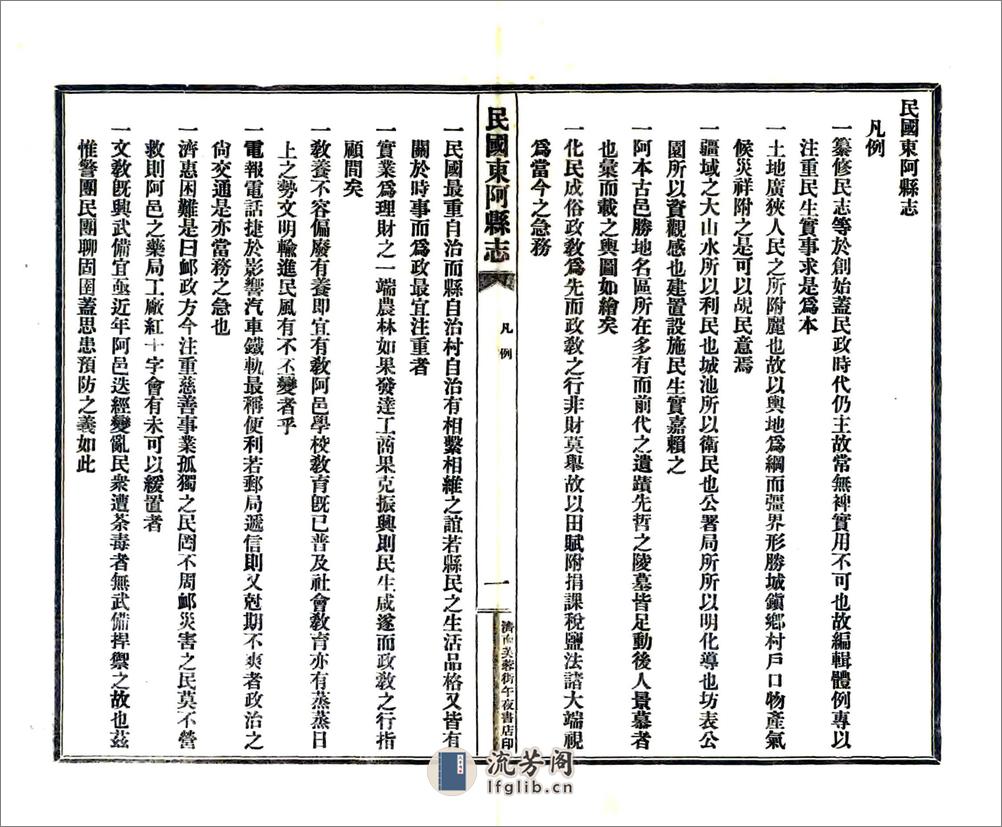 民國東阿縣志
凡例
一纂修民志等於創始蓋民政時代仍主故常無裨實用不可也故編輯體例專以
注重民生實事求是爲本
一土地廣狹人民之所附麗也故以輿地爲綱而疆界形勝城鎭鄉村戶口物產氣
候災祥附之是可以覘民意焉
一疆域之大山水所以利民也城池所以衛民也公署局所所以明化導也坊表公
園所以資觀感也建置設施民生實嘉賴之
一阿本古邑勝地名區所在多有而前代之遺蹟先哲之陵墓皆足動後人景慕者
也彙而載之輿圖如繪矣
一化民成俗政敎爲先而政敎之行非財莫舉故以田賦附捐課稅鹽法諸大端視
爲當今之急務
民國東阿縣志
凡例
一
濟南芙蓉街午夜書店印
一民國最重自治而縣自治村自治有相繫相維之誼若縣民之生活品格又皆有
關於時事而爲政最宜注重者
一實業爲理財之一端農林如果發達工商果克振興則民生咸遂而政敎之行指
顧問矣
一敎養不容偏廢有養即宜有敎阿邑學校敎育旣已普及社會敎育亦有蒸蒸日
上之勢文明輸進民風有不丕變者乎
一電報電話捷於影響汽車鐵軌最稱便利若郵局遞信則又尅期不爽者政治之
尙交通是亦當務之急也
一濟惠困難是曰邮政方今注重慈善事業孤獨之民罔不周邮災害之民莫不營
救則阿邑之藥局工廠紅十字會有未可以緩置者
一文敎旣興武備宜亟近年阿邑迭經變亂民衆遭荼毒者無武備捍禦之故也茲
惟警團民團聊固圉蓋思患預防之義如此
流芳阁
lfglib.cn